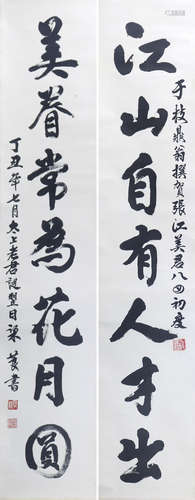 江山自有人才出
于枝鼎翁撰賀張江美君八四初度
美眷常為花月圓
丁丑年七月太上老君誕翌日梁 書